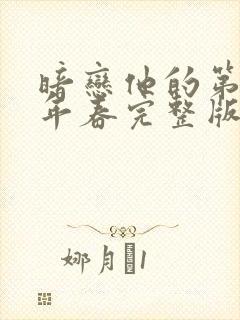 暗戀他的第
年春完整版
娜月1